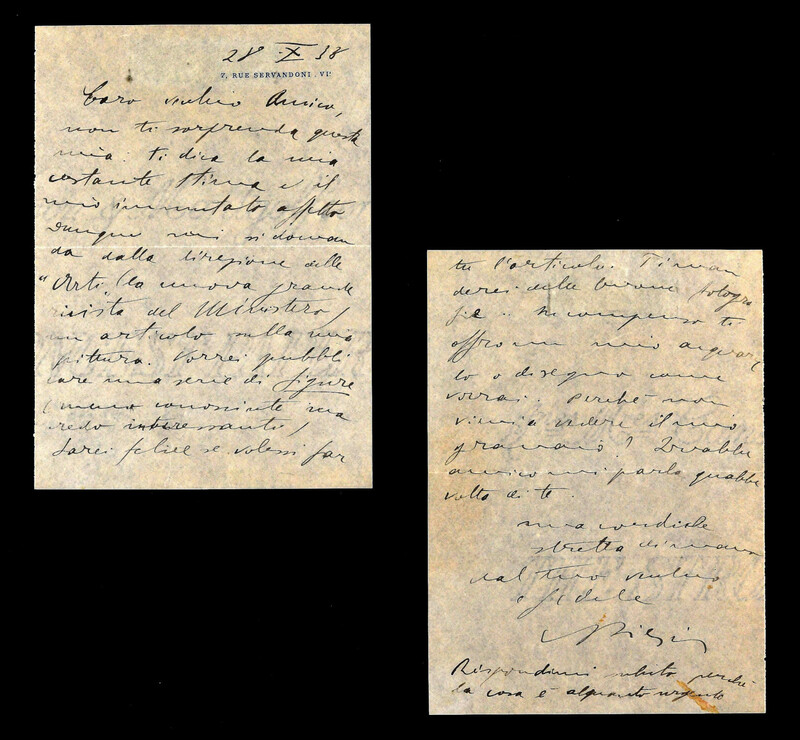 28 X 38
7, RUE SERVANDONI . VIᵉ
Caro vecchio Amico,
non ti sorprenda questa
mia. Ti dica la mia
costante stima e il
mio immutato affetto
Dunque mi si doman
da dalla direzione delle
"Arti (la nuova grande
rivista del Ministero)
un articolo sulla mia
pittura. Vorrei pubbli
care una serie di figure
(meno conosciute ma
credo interessanti)
Sarei felice se volessi far
tu l'articolo. Ti man
derei delle buone fotogra
fie. In compenso ti
offro un mio acquarel
lo o disegno come
vorrai. Perché non
vieni a vedere il mio
granaio? Qualche
amico mi parla qualche
volta di te.
una cordiale
stretta di mano
dal tuo vecchio
e fedele
Rispondimi subito perché
la cosa è alquanto urgente